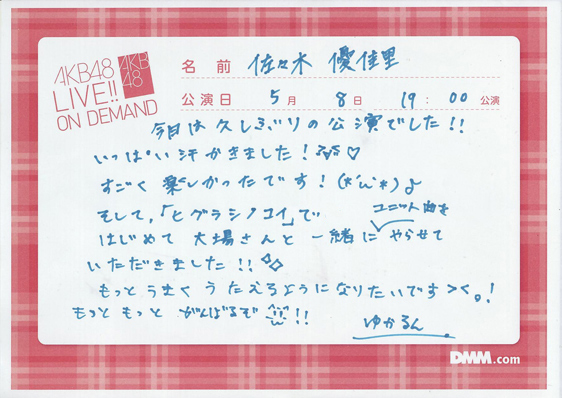 AKB48
LIVE!!
ON DEMAND
AKB
48
名前 佐々木 優佳里
公演日 5月 8日 19:00 公演
今日は久しぶりの公演でした!!
いっぱい汗かきました!♡
すごく楽しかったです!(*´ω`*)♪
そして、「ヒグラシノコイ」で ユニット曲を
はじめて 大場さんと 一緒に やらせて
いただきました!!
もっと うまく うたえるようになりたいです><。!
もっと もっと がんばるぞ!!
ゆかるん
DMM.com